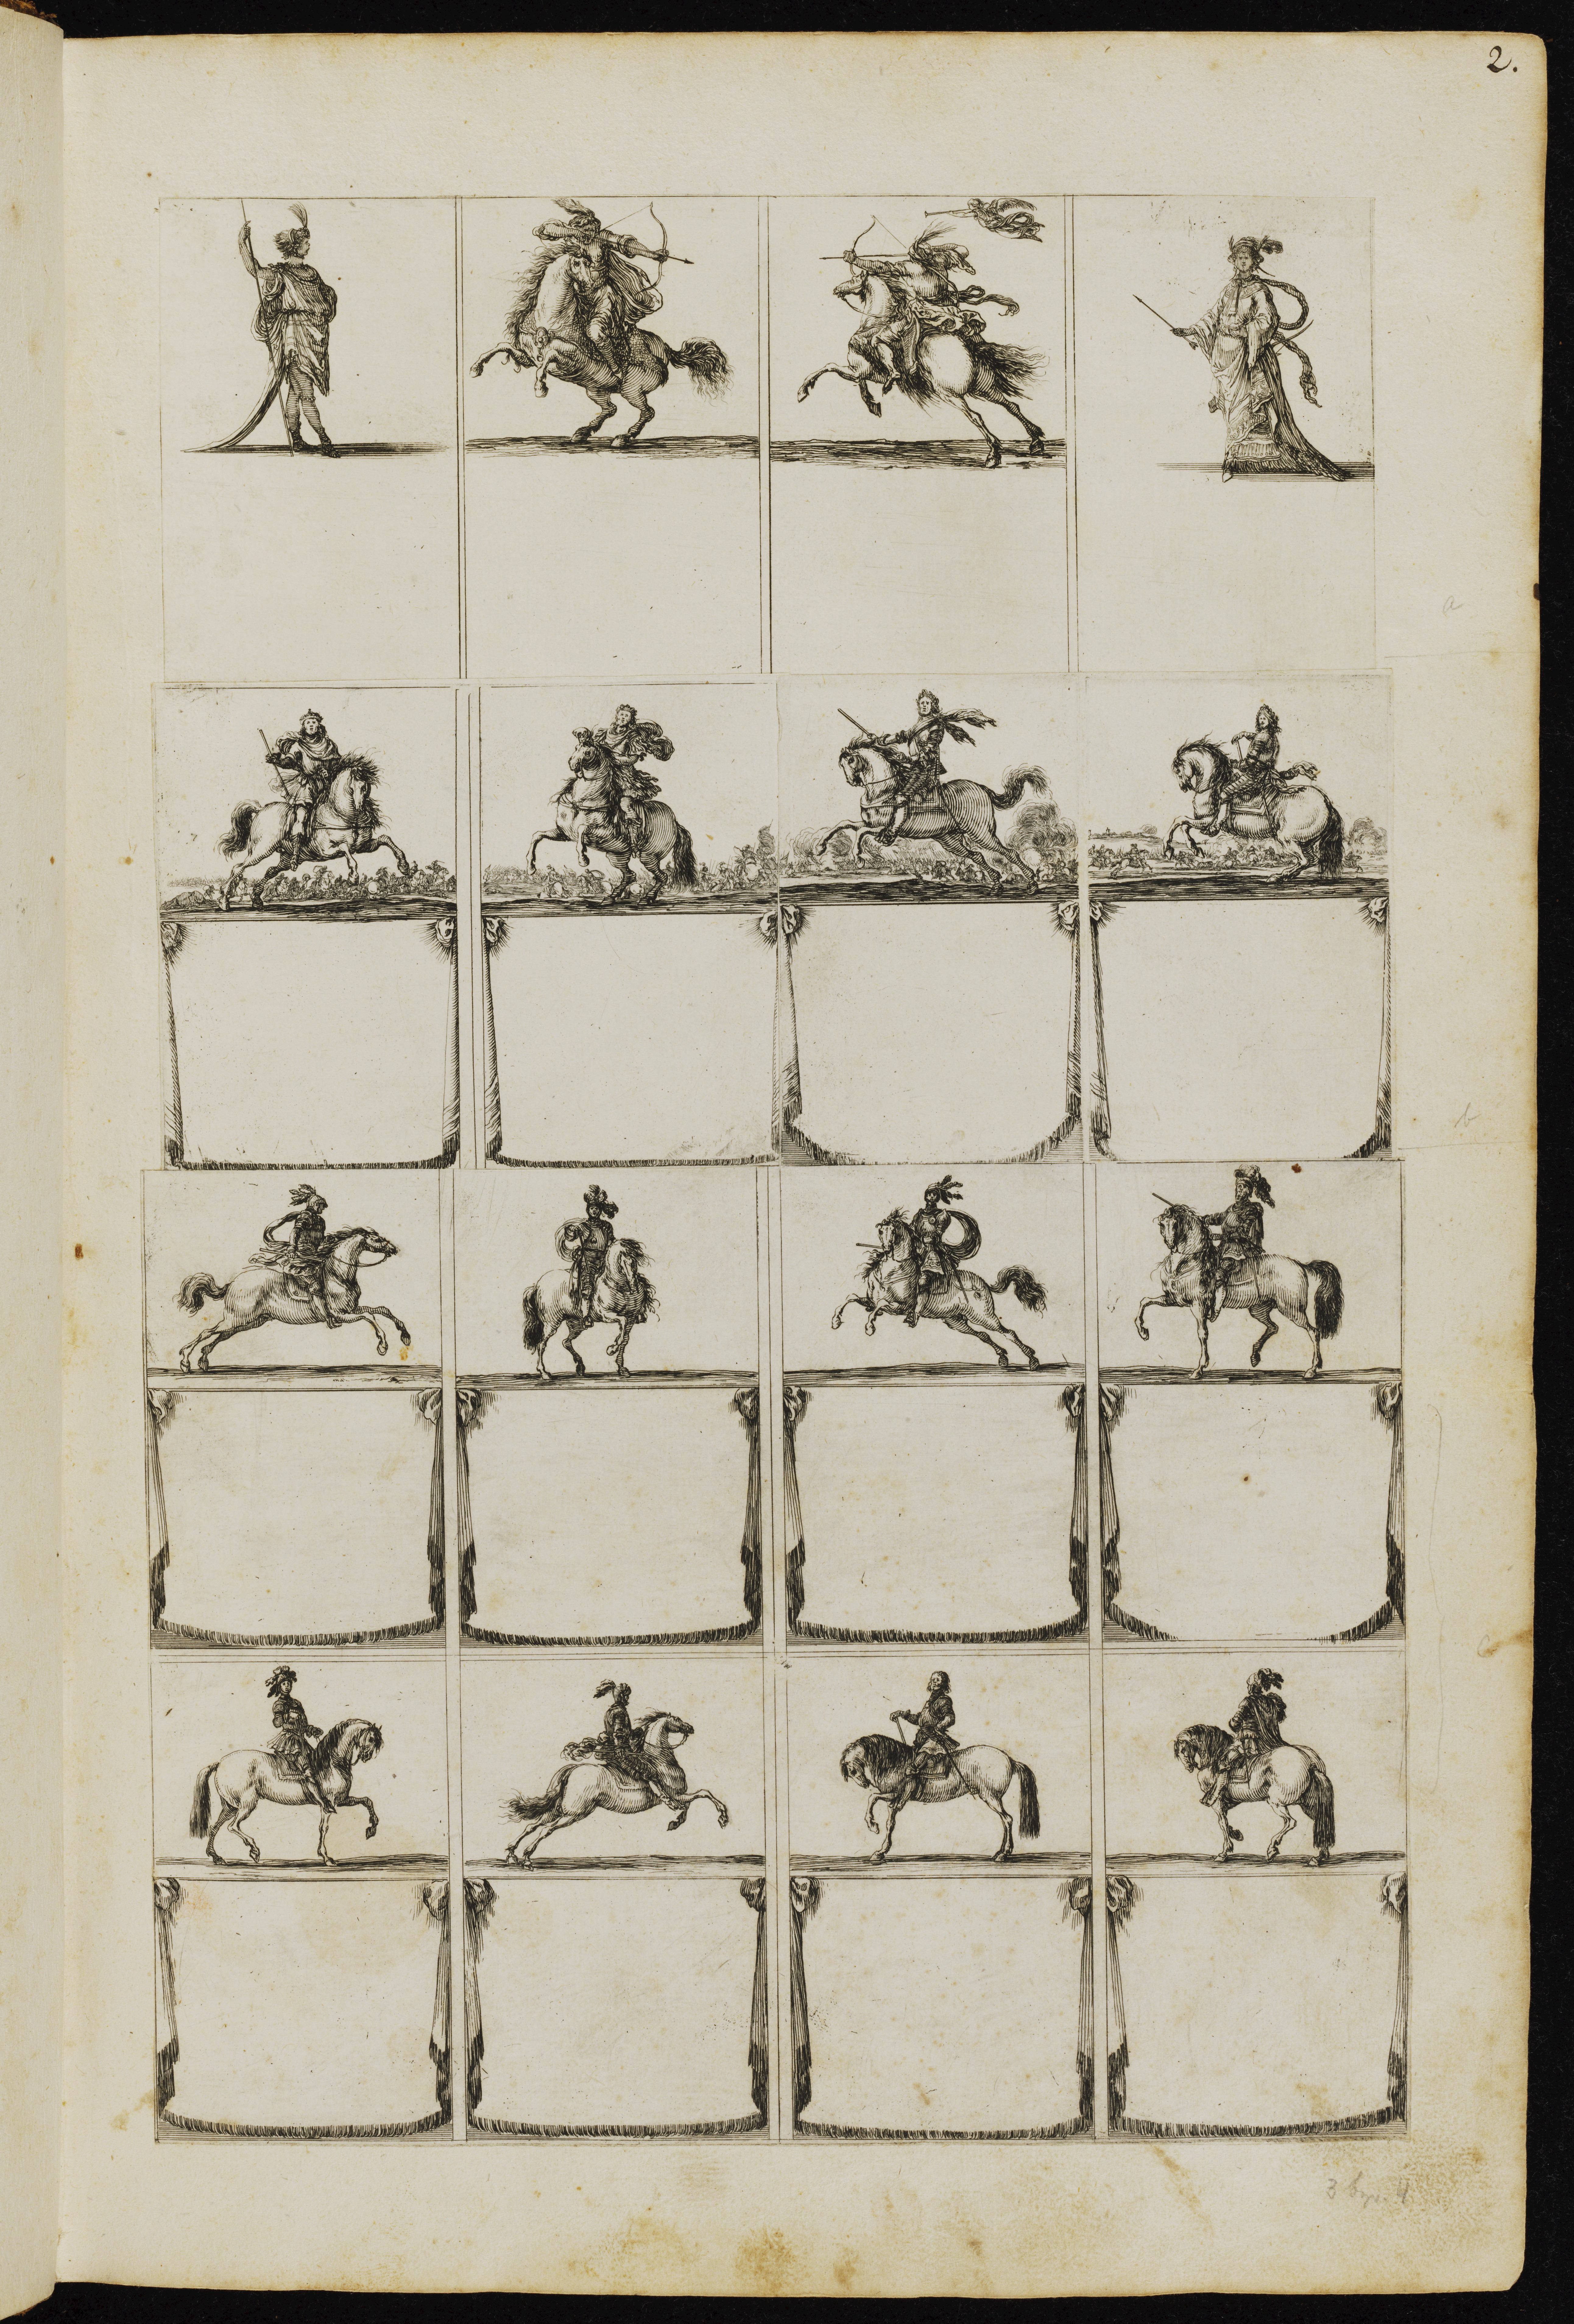 2.
a
b
c